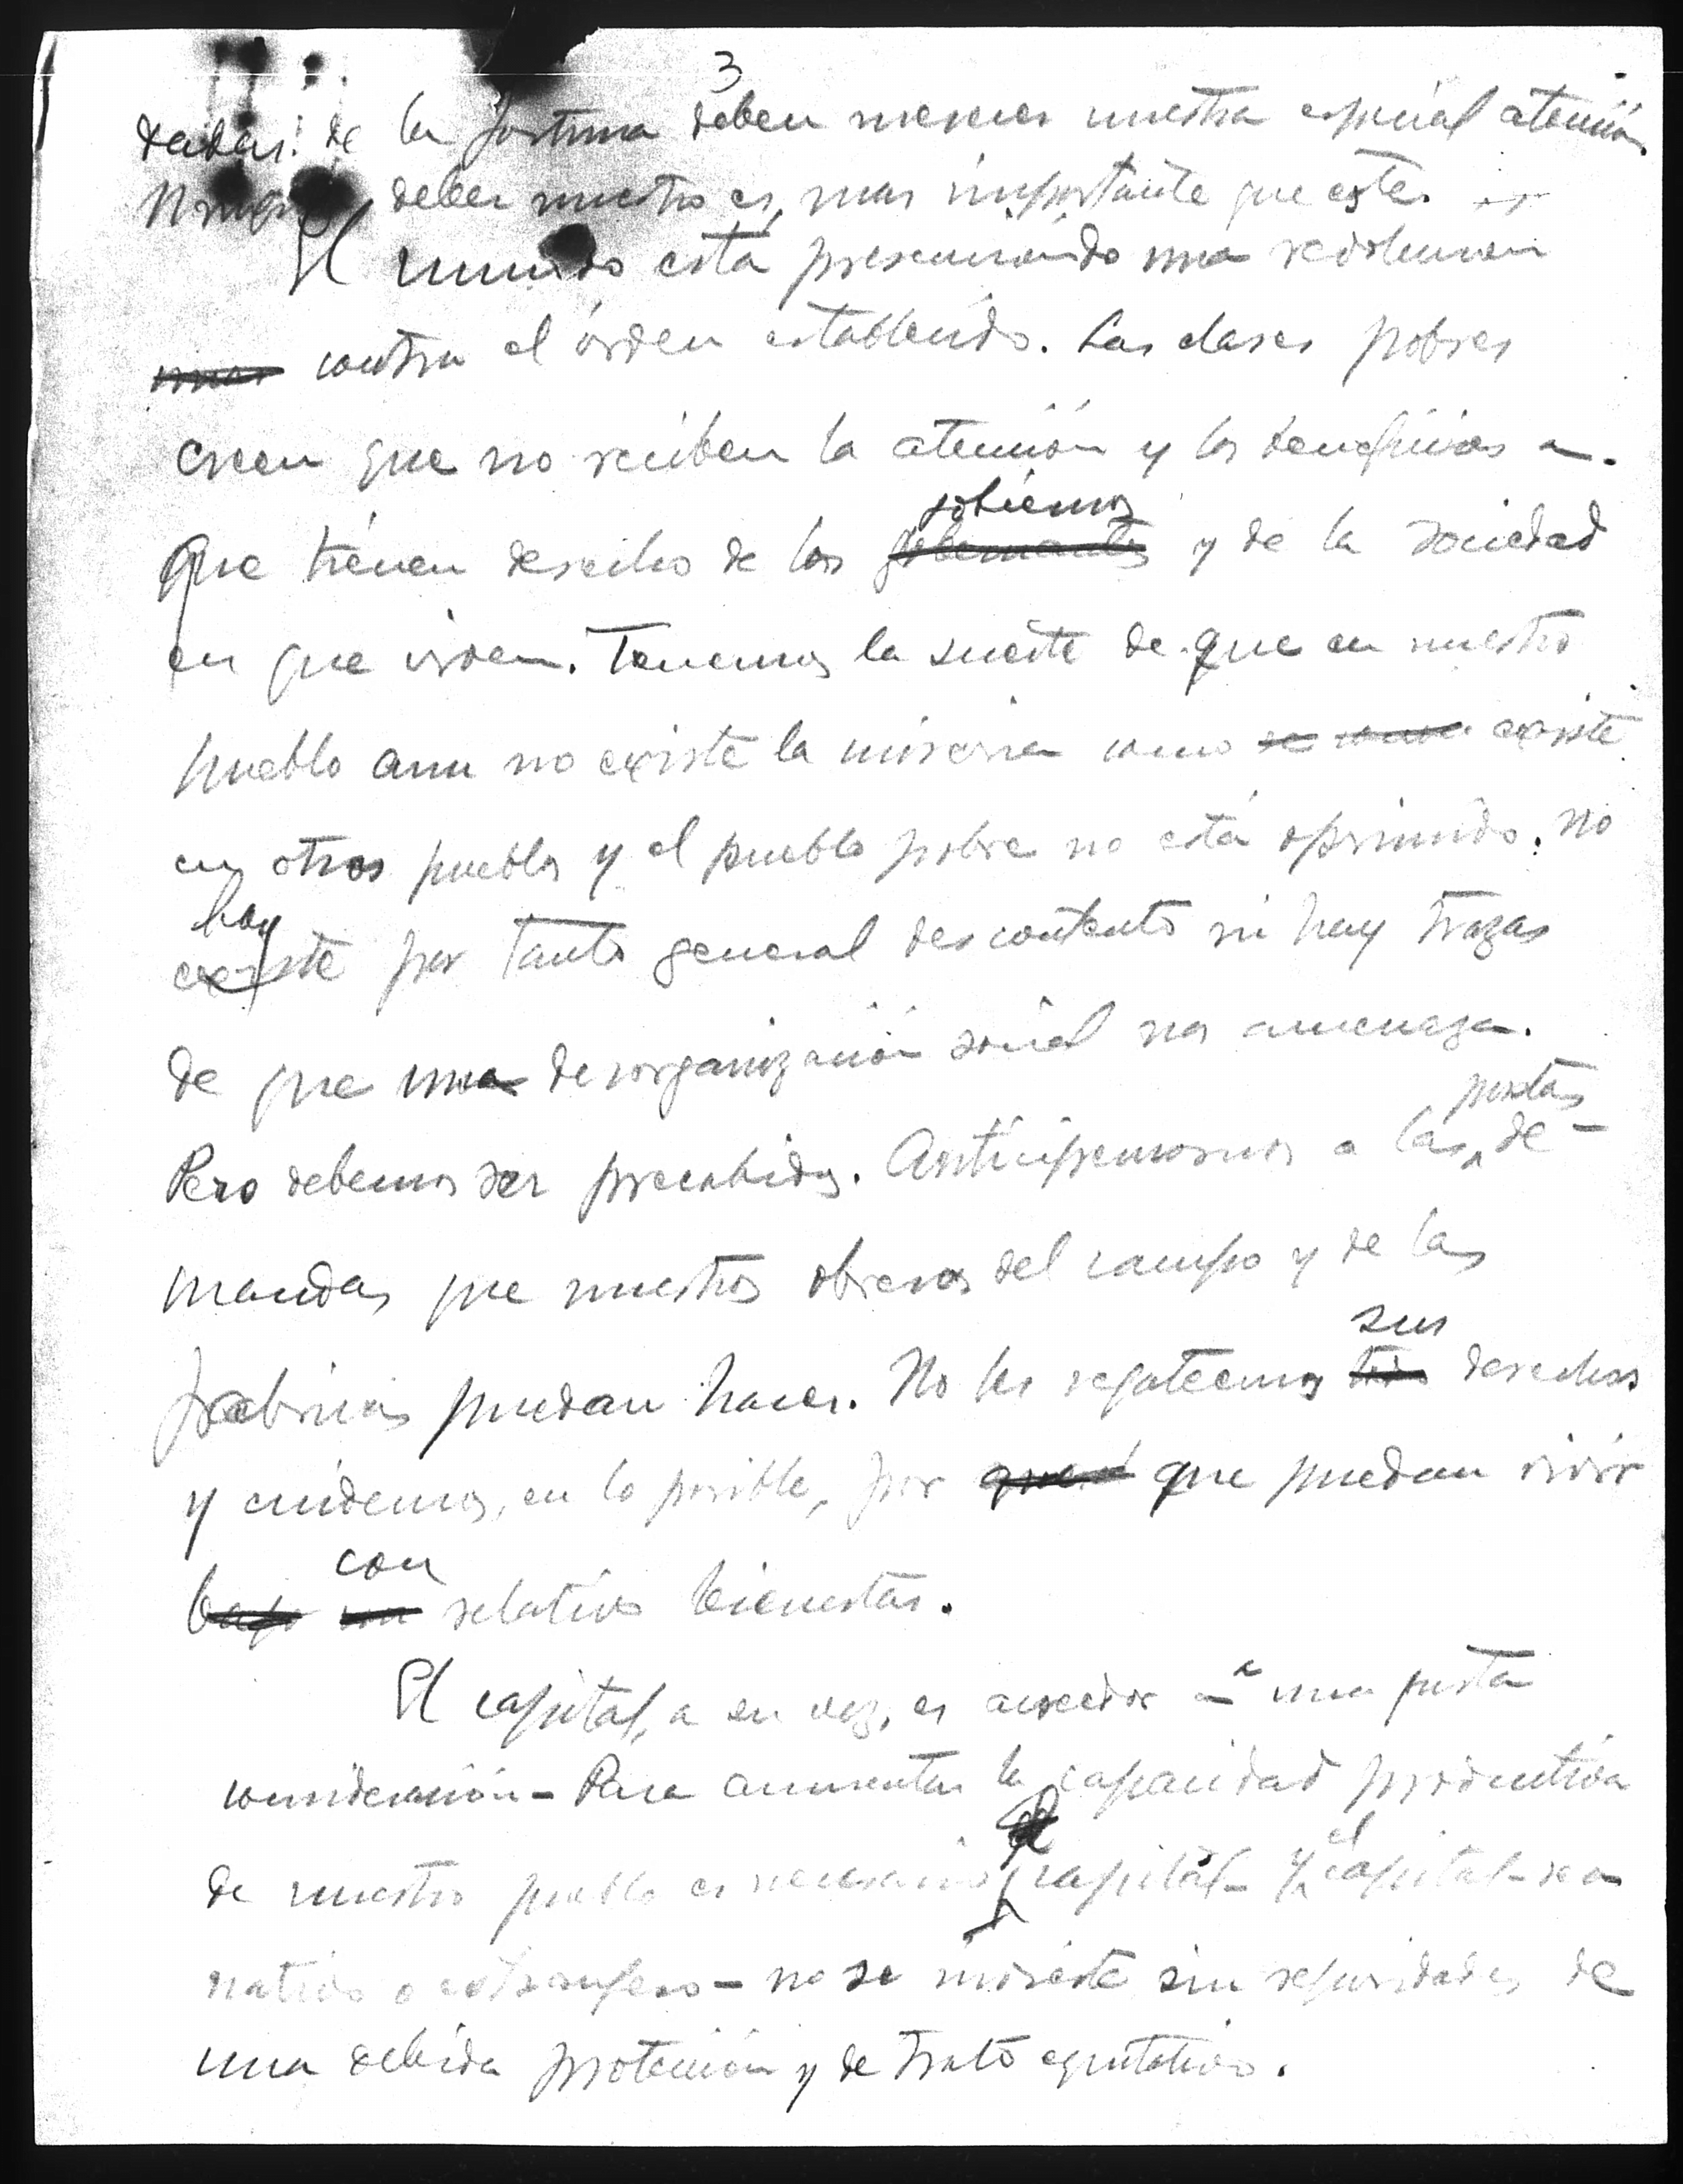 3
dadas: de la fortuna deben merecer nuestra especial atención.
Ningún deber nuestro es mas importante que este.
El mundo está presenciando una revolucion
contra el órden establecido. Las clases pobres
creen que no reciben la atención y los beneficios a
que tienen derecho de los gobiernos gobernantes y de la sociedad
en que viven. Tenemos la suerte de que en nuestro
pueblo aun no existe la miseria como se existe
en otros pueblos y el pueblo pobre no está oprimido. No
hay
existe por tanto general descontento ni hay trazas
de que una desorganización social nos amenaza.
justas
Pero debemos ser precabidos. Anticipemosnos a las de-
mandas que nuestros obreros del campo y de las
sus
fabricas puedan hacer. No les regateemos derechos
y cuidemos, en lo posible, por que puedan vivir
con
bajo un relativo bienestar.
El capital, a su vez, es acreedor a una justa
consideración - Para aumentar la capacidad productiva
de nuestro pueblo es necesario capital - y el capital - sea
nativo o extranjero - no se invierte sin seguridades de
una debida protección y de trato equitativo.